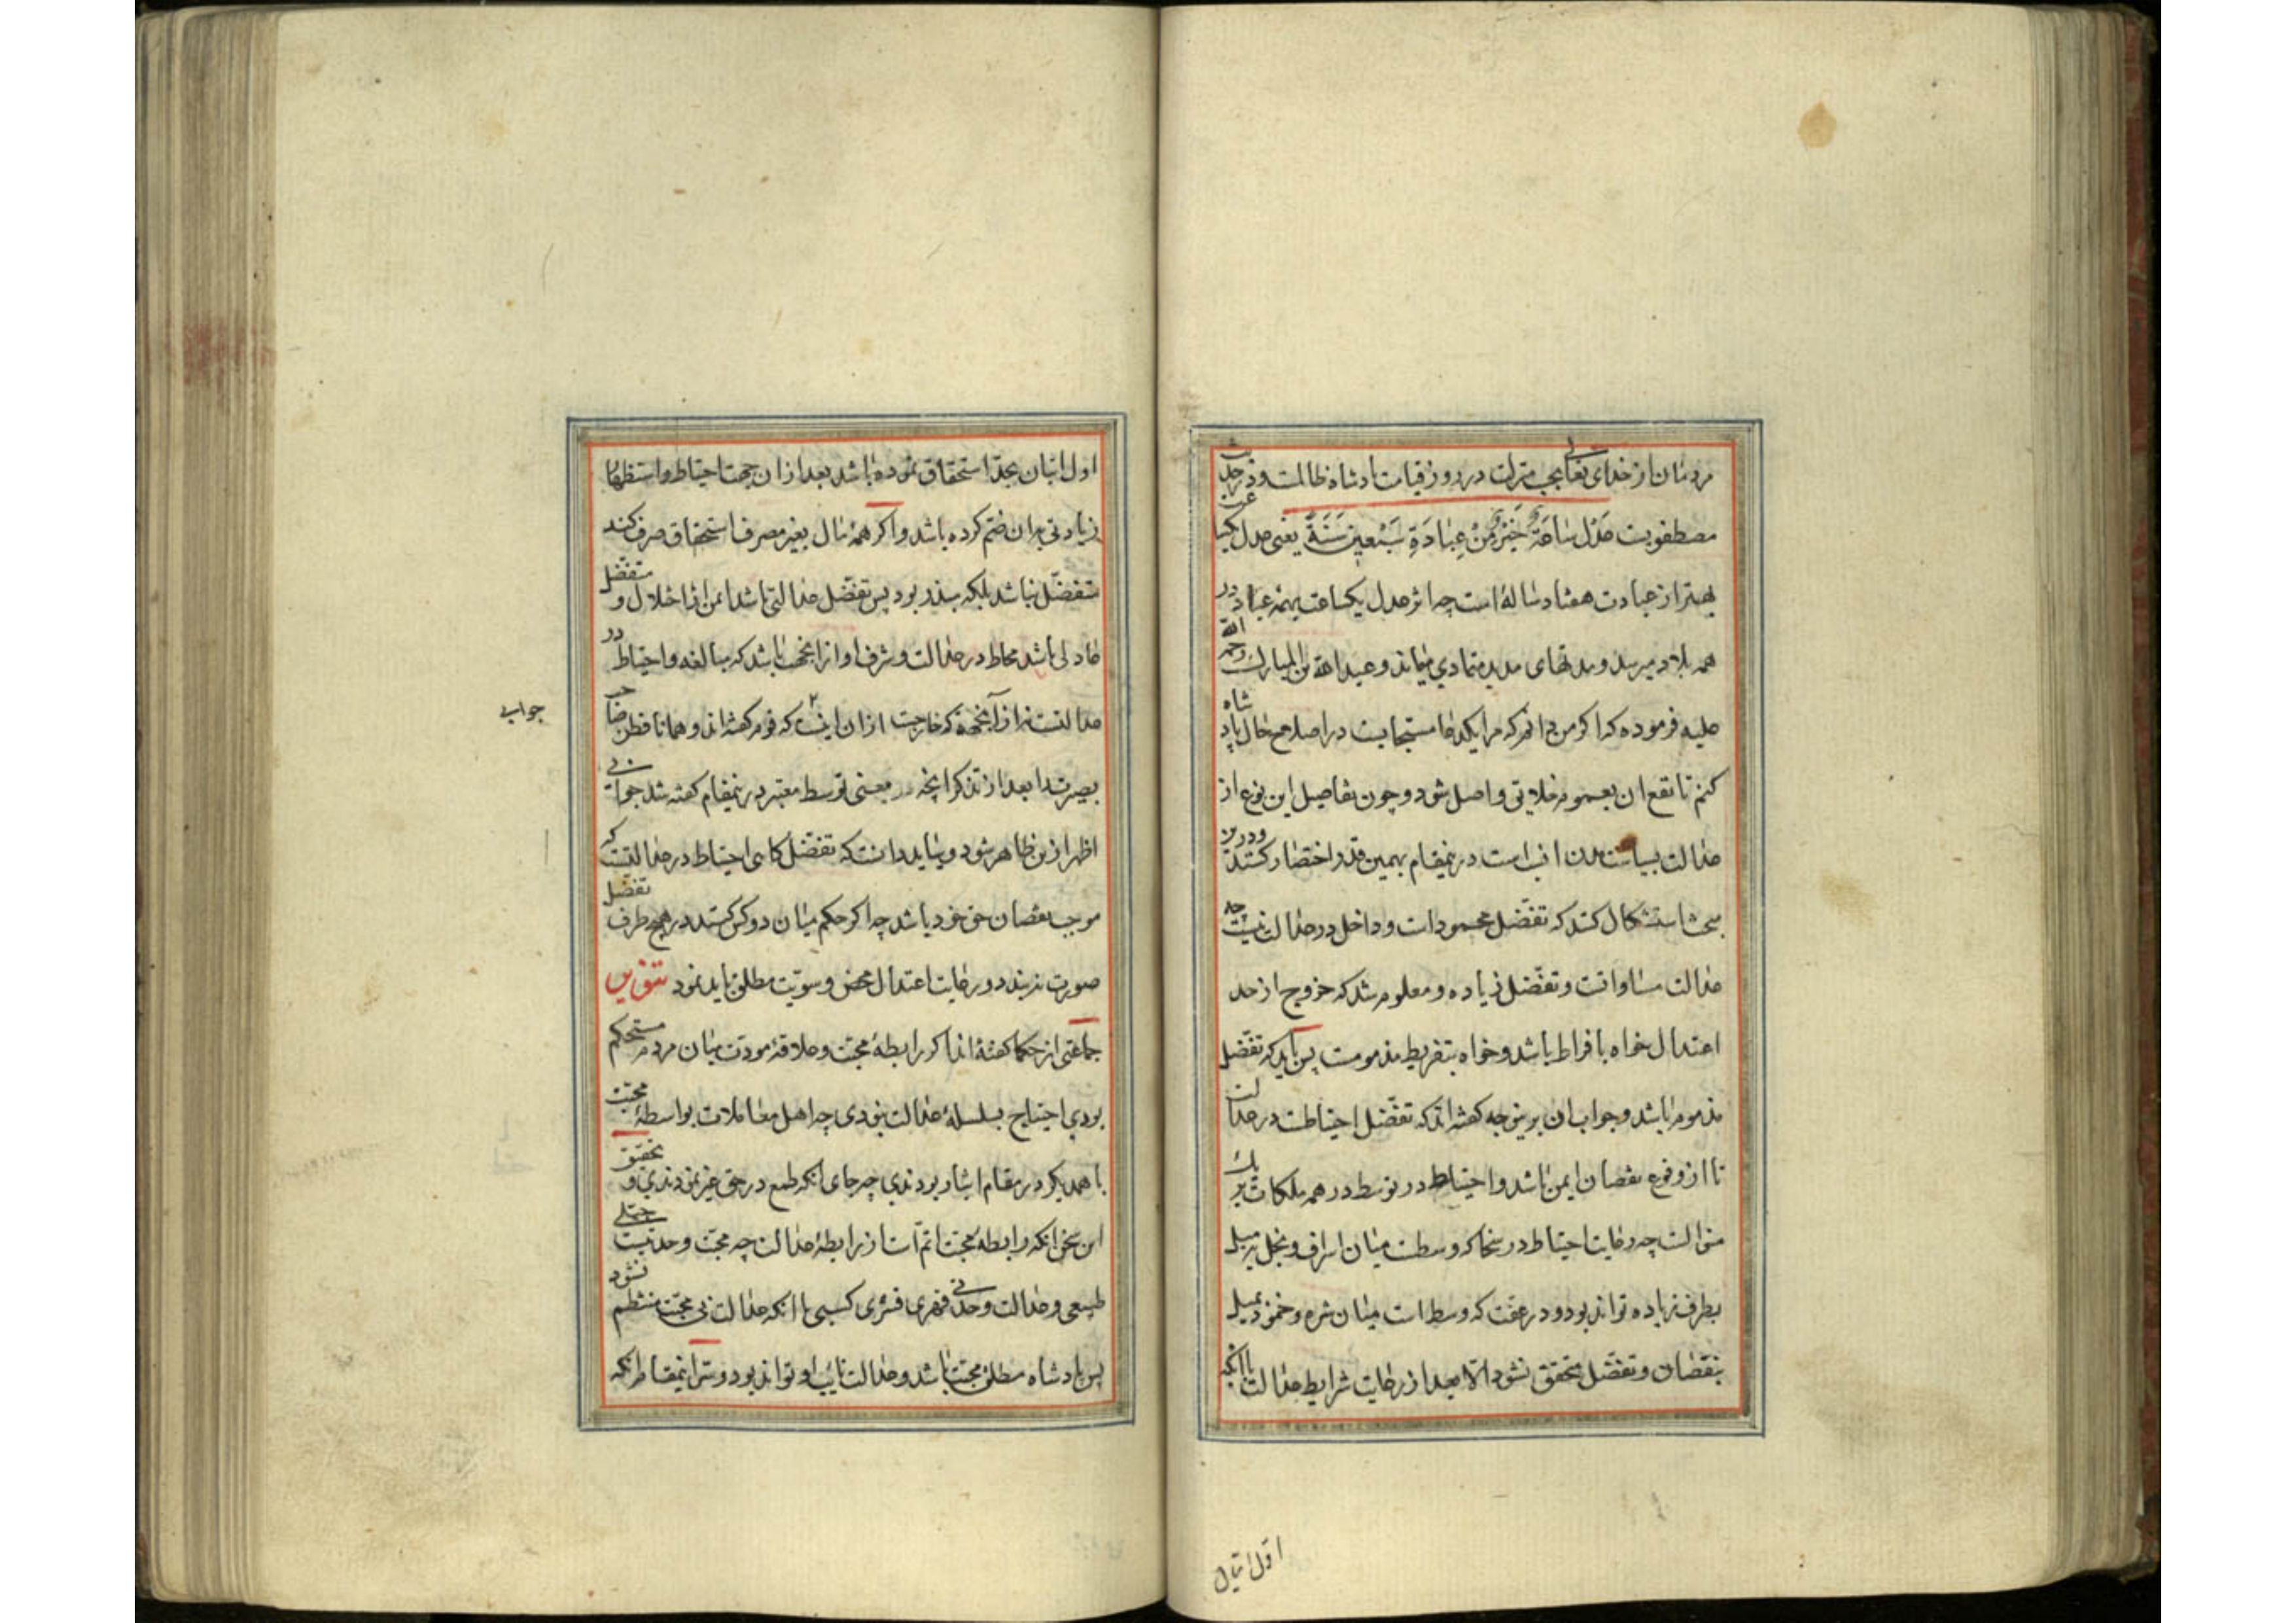 مردمان از خدای تعالی بحسب منزلت در روز قیامت پادشاه ظالمست و در حدیث
مصطفویست عَدْلُ سَاعَةٍ خَیْرٌ مِنْ عِبَادَةِ سَبْعِینَ سَنَةً یعنی عدل یکساعت
بهتر از عبادت هفتاد ساله است چه اثر عدل یکساعت بهمه عباد در
همه بلاد میرسد و مدتهای مدید متمادی میماند و عبدالله بن المبارک رحمه الله
علیه فرموده که اگر من دانم که مرا یکدعا مستجابست در اصلاح حال پادشاه
کنم تا نفع ان بعموم خلایق واصل شود و چون تفاصیل این نوع از
عدالت بسیاست مدن انسب است درینمقام بهمین قدر اختصار کنند و درین
بحث استشکال کنند که تفضل محمودات و داخل در عدالت نیست چه
عدالت مساواتست و تفضل زیاده و معلوم شد که خروج از حد
اعتدال خواه بافراط باشد و خواه بتفریط مذمومست پس باید که تفضل
مذموم باشد و جواب ان برینوجه گفته اند که تفضل احتیاطست در عدالت
تا از وقوع نقصان ایمن باشد و احتیاط در توسط در همه ملکات بر یک
منوالست چه رعایت احتیاط در سخا که وسطست میان اسراف و بخل بمیل
بطرف زیاده تواند بود و در عفت که وسط است میان شره و خمود بمیل
بنقصان و تفضل متحقق نشود الا بعد از رعایت شرایط عدالت باانکه
اول اتیان
اول اتیان بحد استحقاق نموده باشد بعد ازان جهت احتیاط و استظهار
زیادتی بران ضم کرده باشد و اگر همهٔ مال بغیر مصرف استحقاق صرف کند
متفضل نباشد بلکه مبذر بود پس تفضل عدالتی باشد ایمن از اختلال و متفضل
عادلی باشد محتاط در عدالت و شرف او ازانجهت باشد که مبالغه و احتیاط در
عدالتست نه ازآنجهة که خارجست ازان اینست که قوم گفته اند و همانا فطن صاحب
بصیرت را بعد از تذکر انچه در معنی توسط معتبر درینمقام گفته شد جوابی
جوابی
اظهر ازین ظاهر شود و بباید دانست که تفضل کاهی احتیاط در عدالتست که
موجب نقصان حق خود باشد چه اگر حکم میان دو کس کند در هیچ طرف تفضل
صورت نبندد و رعایت اعتدال محض و سویت مطلق باید نمود تنویر
جماعتی از حکما گفتهٔ اند اگر رابطهٔ محبت و علاقهٔ مودت میان مردم مستحکم
بودی احتیاج بسلسلهٔ عدالت نبودی چه اهل معاملات بواسطهٔ محبت
با همدیگر در مقام ایثار بودندی چه جای انکه طمع در حق غیر نمودندی و تحقیق
این سخن انکه رابطهٔ محبت اتم است از رابطهٔ عدالت چه محبت وحدتیست جبلی
طبیعی و عدالت وحدتی قهری قسری کسبی با انکه عدالت بی محبت منتظم نشود
پس پادشاه مطلق محبت باشد و عدالت نایب او تواند بود و سر اینمقام انکه